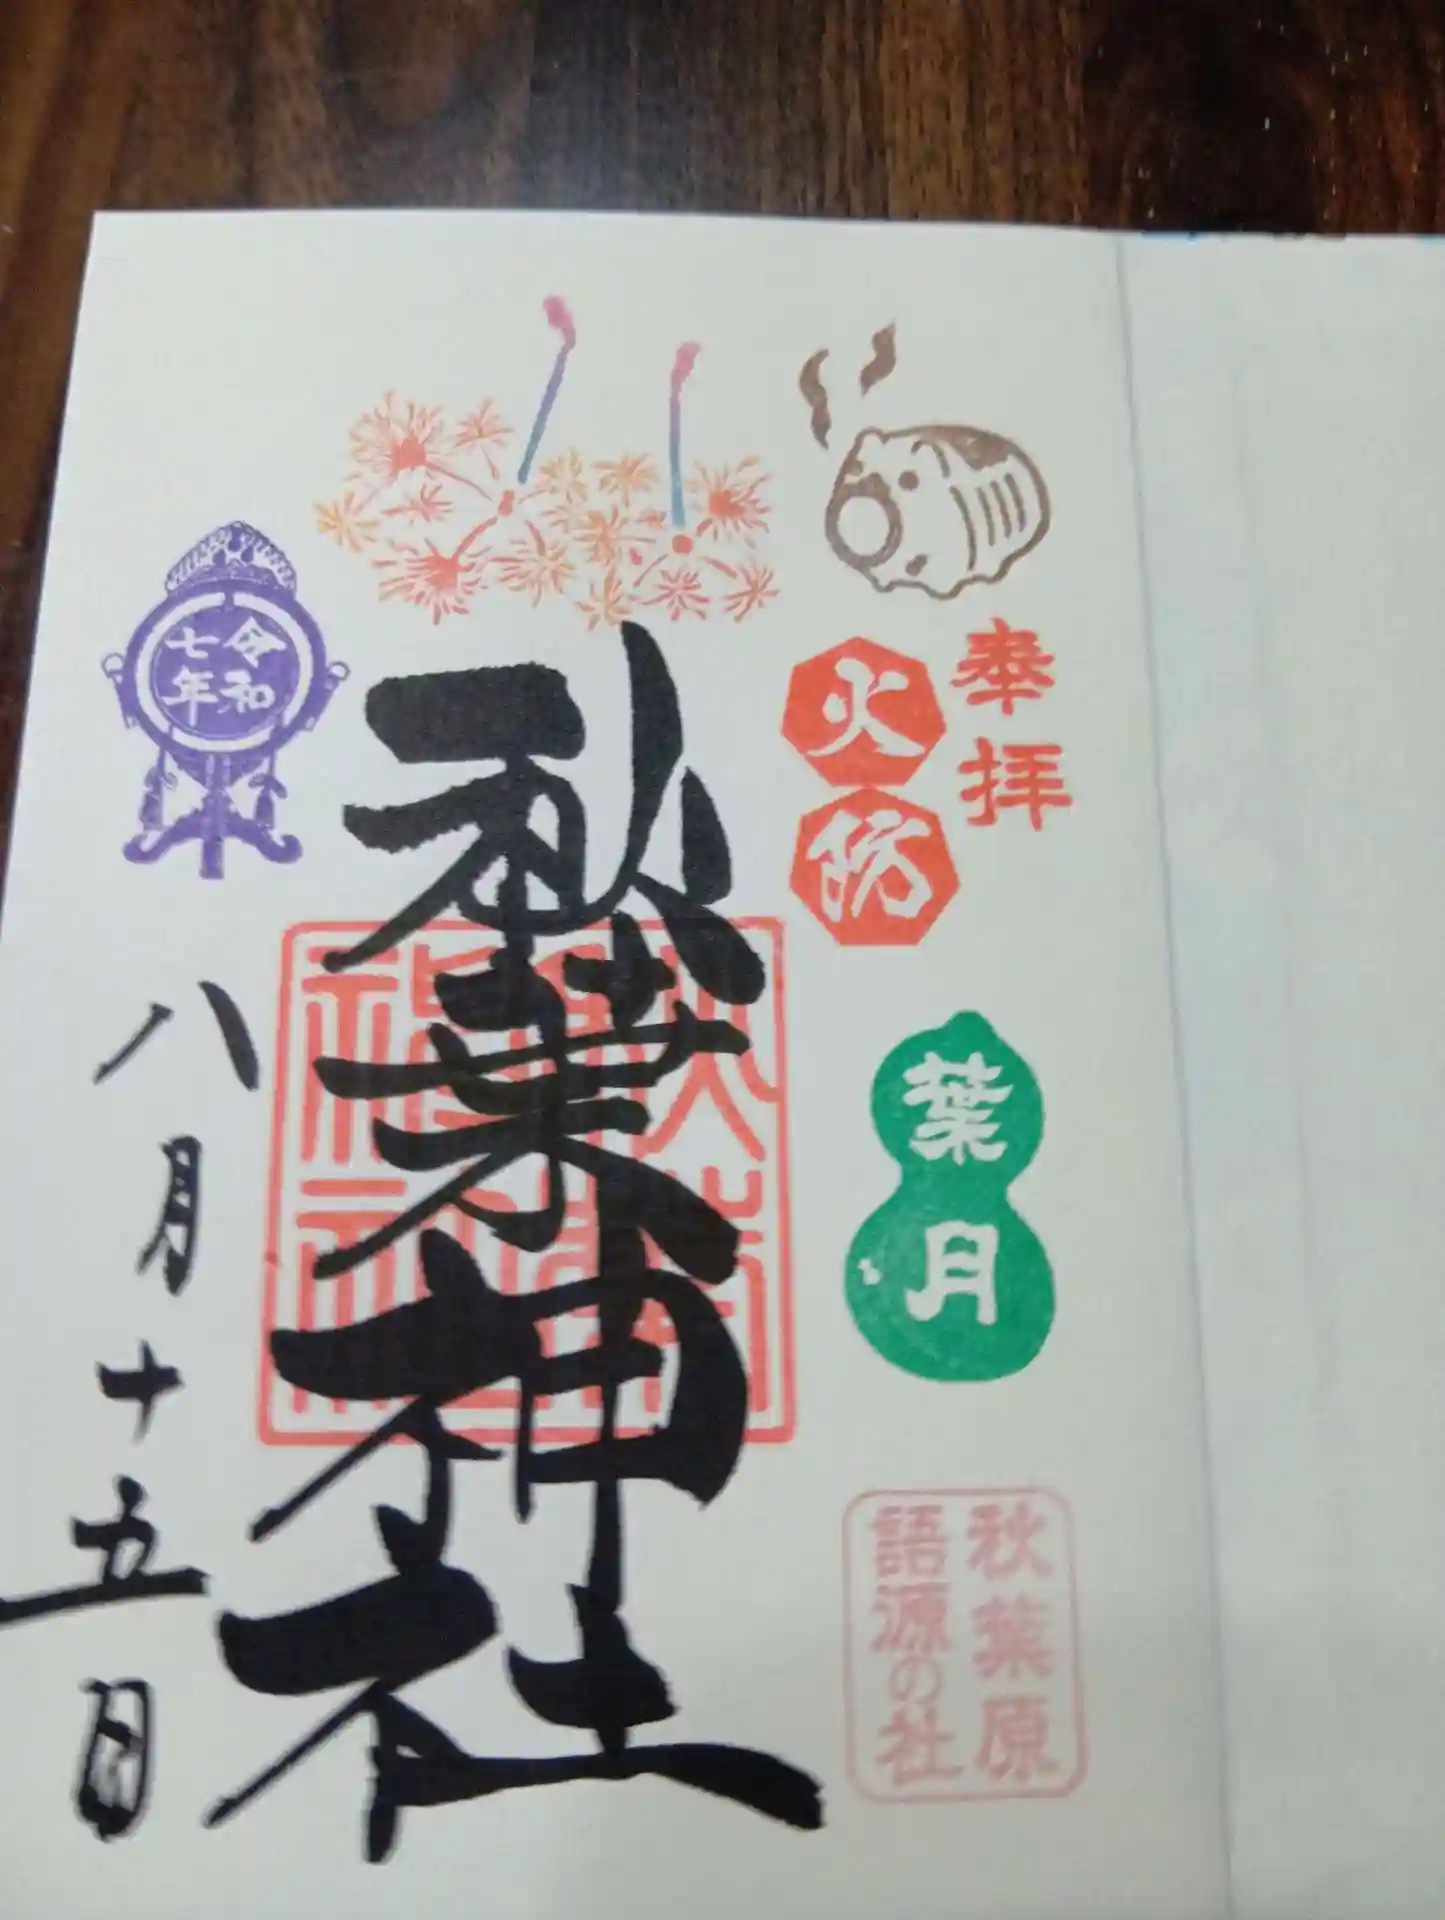 奉拝
火防
葉月
秋葉原
語源の社
秋葉神社
令和
七年
八月十五日